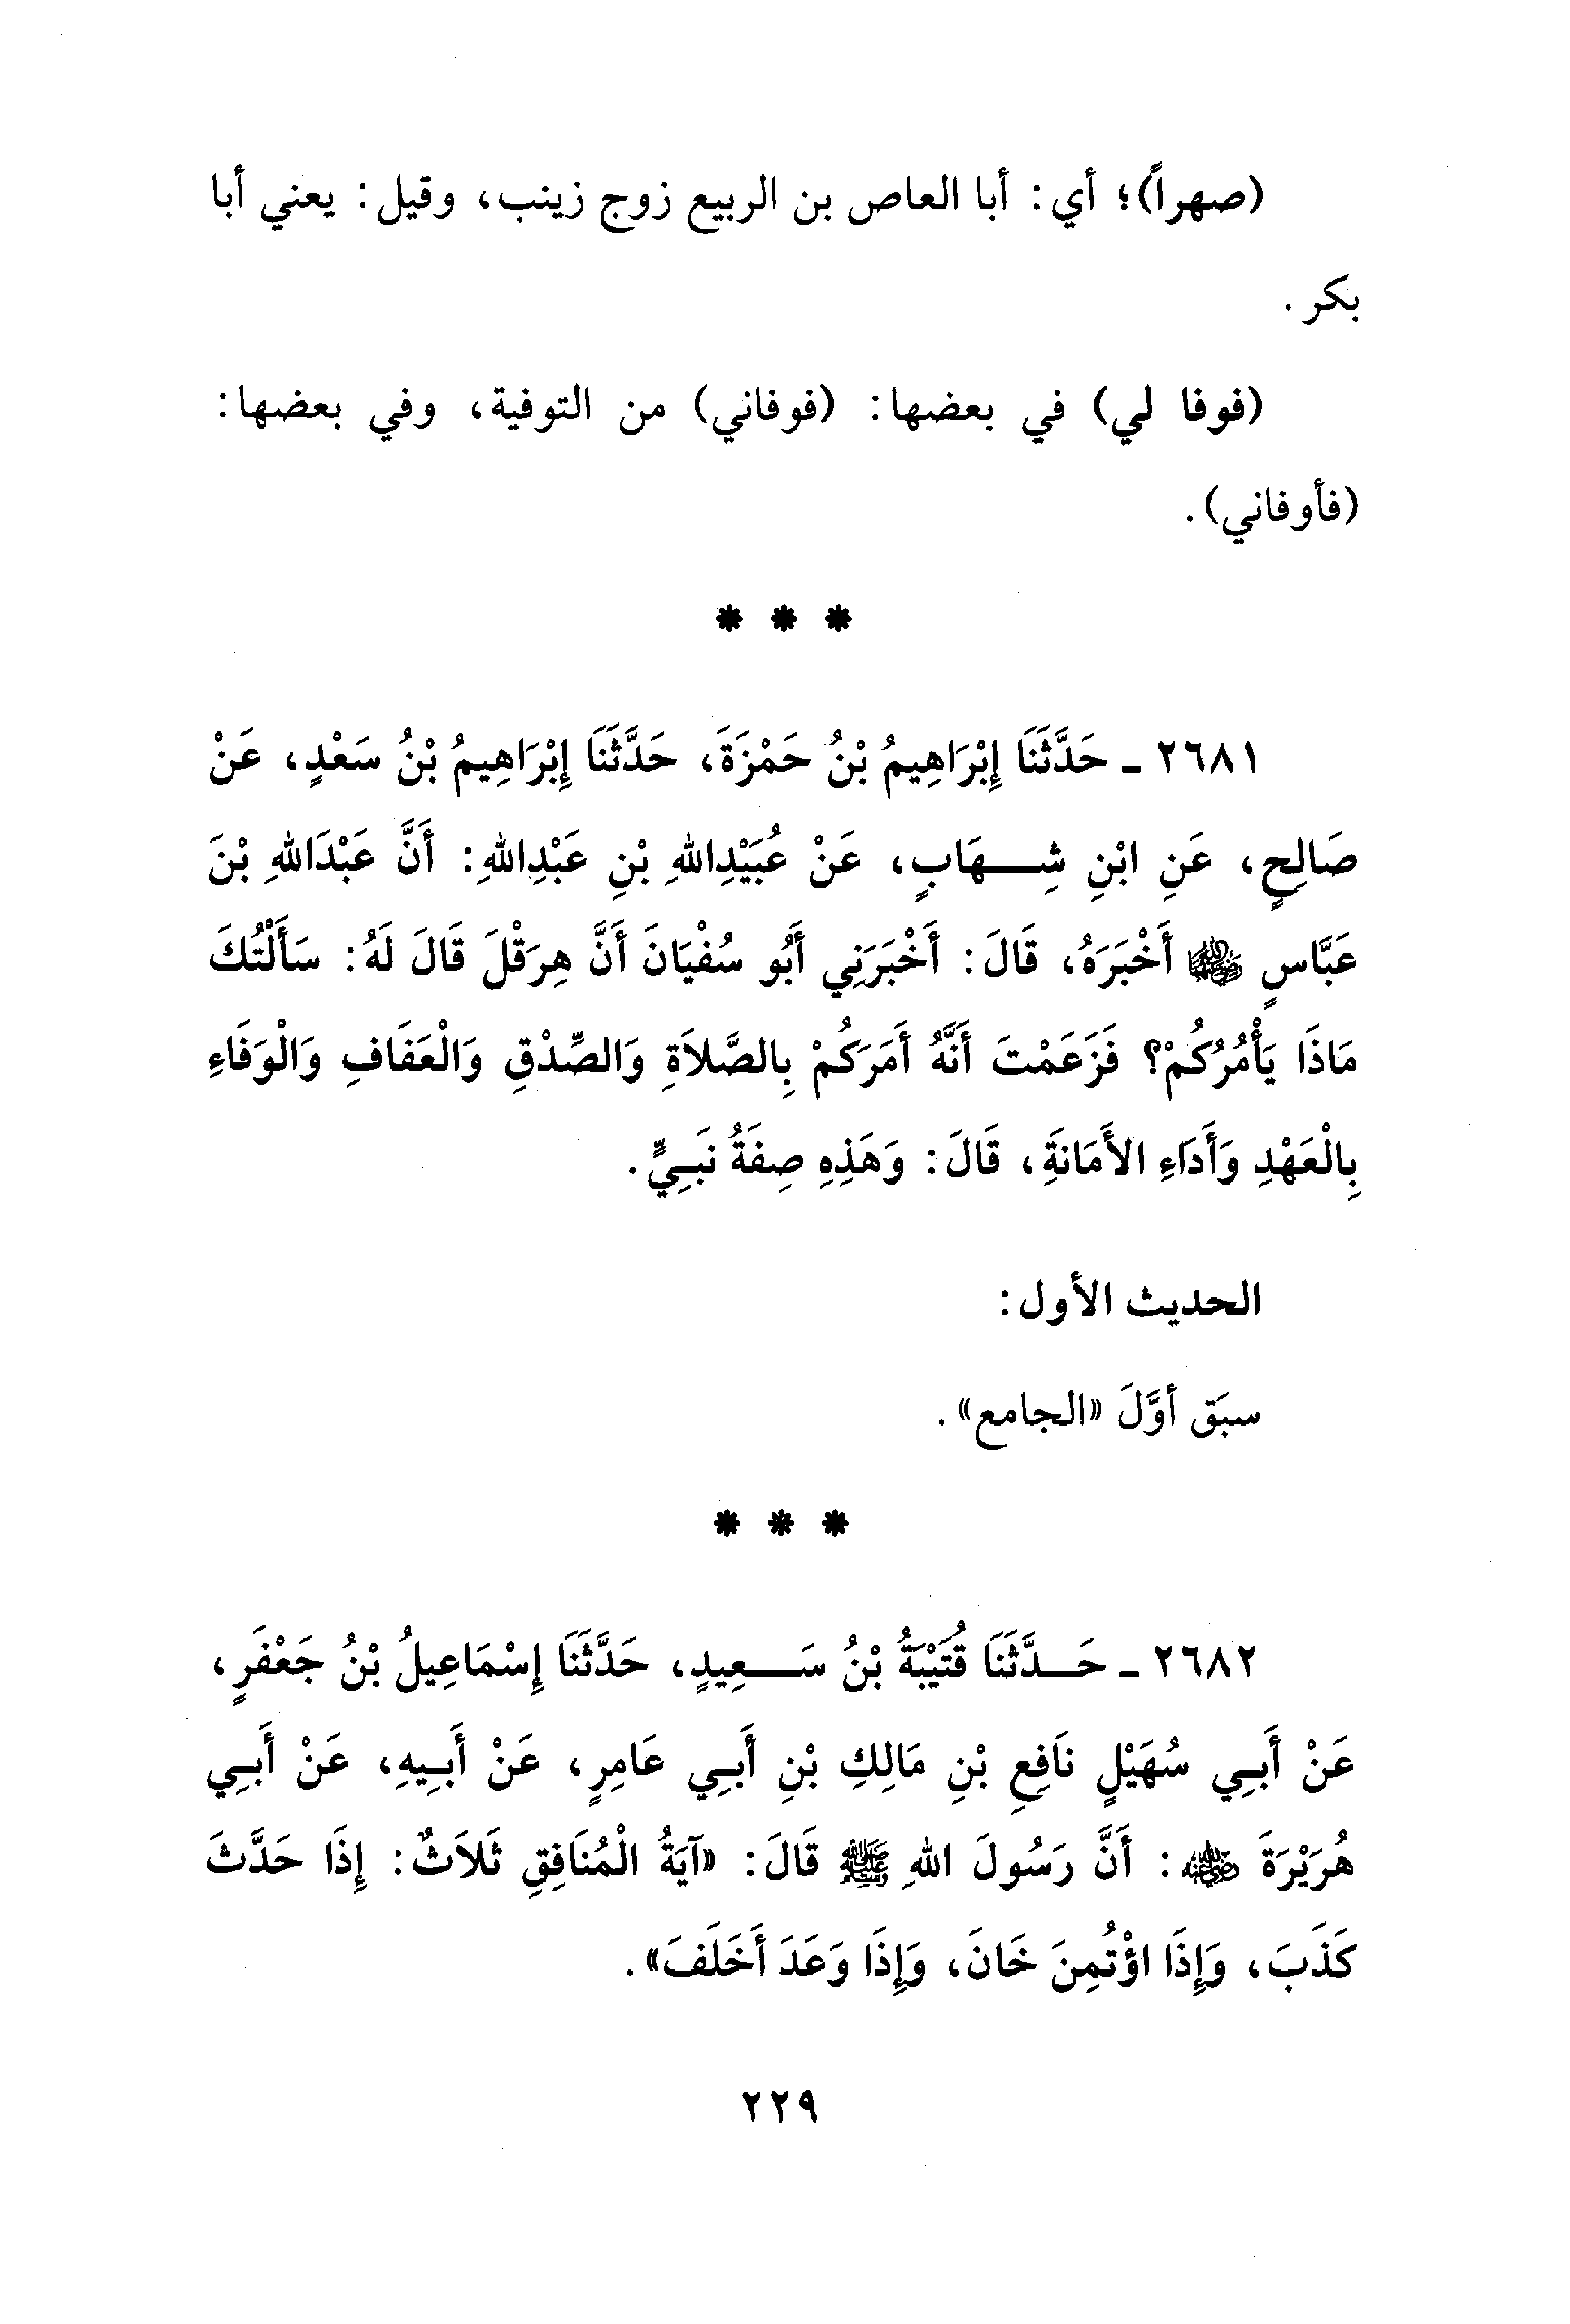 (صهراً)؛ أي: أبا العاص بن الربيع زوج زينب، وقيل: يعني أبا
بكر.
(فوفا لي) في بعضها: (فوفاني) من التوفية، وفي بعضها:
(فأوفاني).
* * *
٢٦٨١ - حَدَّثَنَا إِبْرَاهِيمُ بْنُ حَمْزَةَ، حَدَّثَنَا إِبْرَاهِيمُ بْنُ سَعْدٍ، عَنْ
صَالِحٍ، عَنِ ابْنِ شِهَابٍ، عَنْ عُبَيْدِاللهِ بْنِ عَبْدِاللهِ: أَنَّ عَبْدَاللهِ بْنَ
عَبَّاسٍ رضي الله عنهما أَخْبَرَهُ، قَالَ: أَخْبَرَنِي أَبُو سُفْيَانَ أَنَّ هِرَقْلَ قَالَ لَهُ: سَأَلْتُكَ
مَاذَا يَأْمُرُكُمْ؟ فَزَعَمْتَ أَنَّهُ أَمَرَكُمْ بِالصَّلاَةِ وَالصِّدْقِ وَالْعَفَافِ وَالْوَفَاءِ
بِالْعَهْدِ وَأَدَاءِ الأَمَانَةِ، قَالَ: وَهَذِهِ صِفَةُ نَبِيٍّ.
الحديث الأول:
سبَق أوَّلَ «الجامع».
* * *
٢٦٨٢ - حَدَّثَنَا قُتَيْبَةُ بْنُ سَعِيدٍ، حَدَّثَنَا إِسْمَاعِيلُ بْنُ جَعْفَرٍ،
عَنْ أَبِي سُهَيْلٍ نَافِعِ بْنِ مَالِكِ بْنِ أَبِي عَامِرٍ، عَنْ أَبِيهِ، عَنْ أَبِي
هُرَيْرَةَ رضي الله عنه: أَنَّ رَسُولَ اللهِ ﷺ قَالَ: «آيَةُ الْمُنَافِقِ ثَلاَثٌ: إِذَا حَدَّثَ
كَذَبَ، وَإِذَا اؤْتُمِنَ خَانَ، وَإِذَا وَعَدَ أَخَلَفَ».
٢٢٩